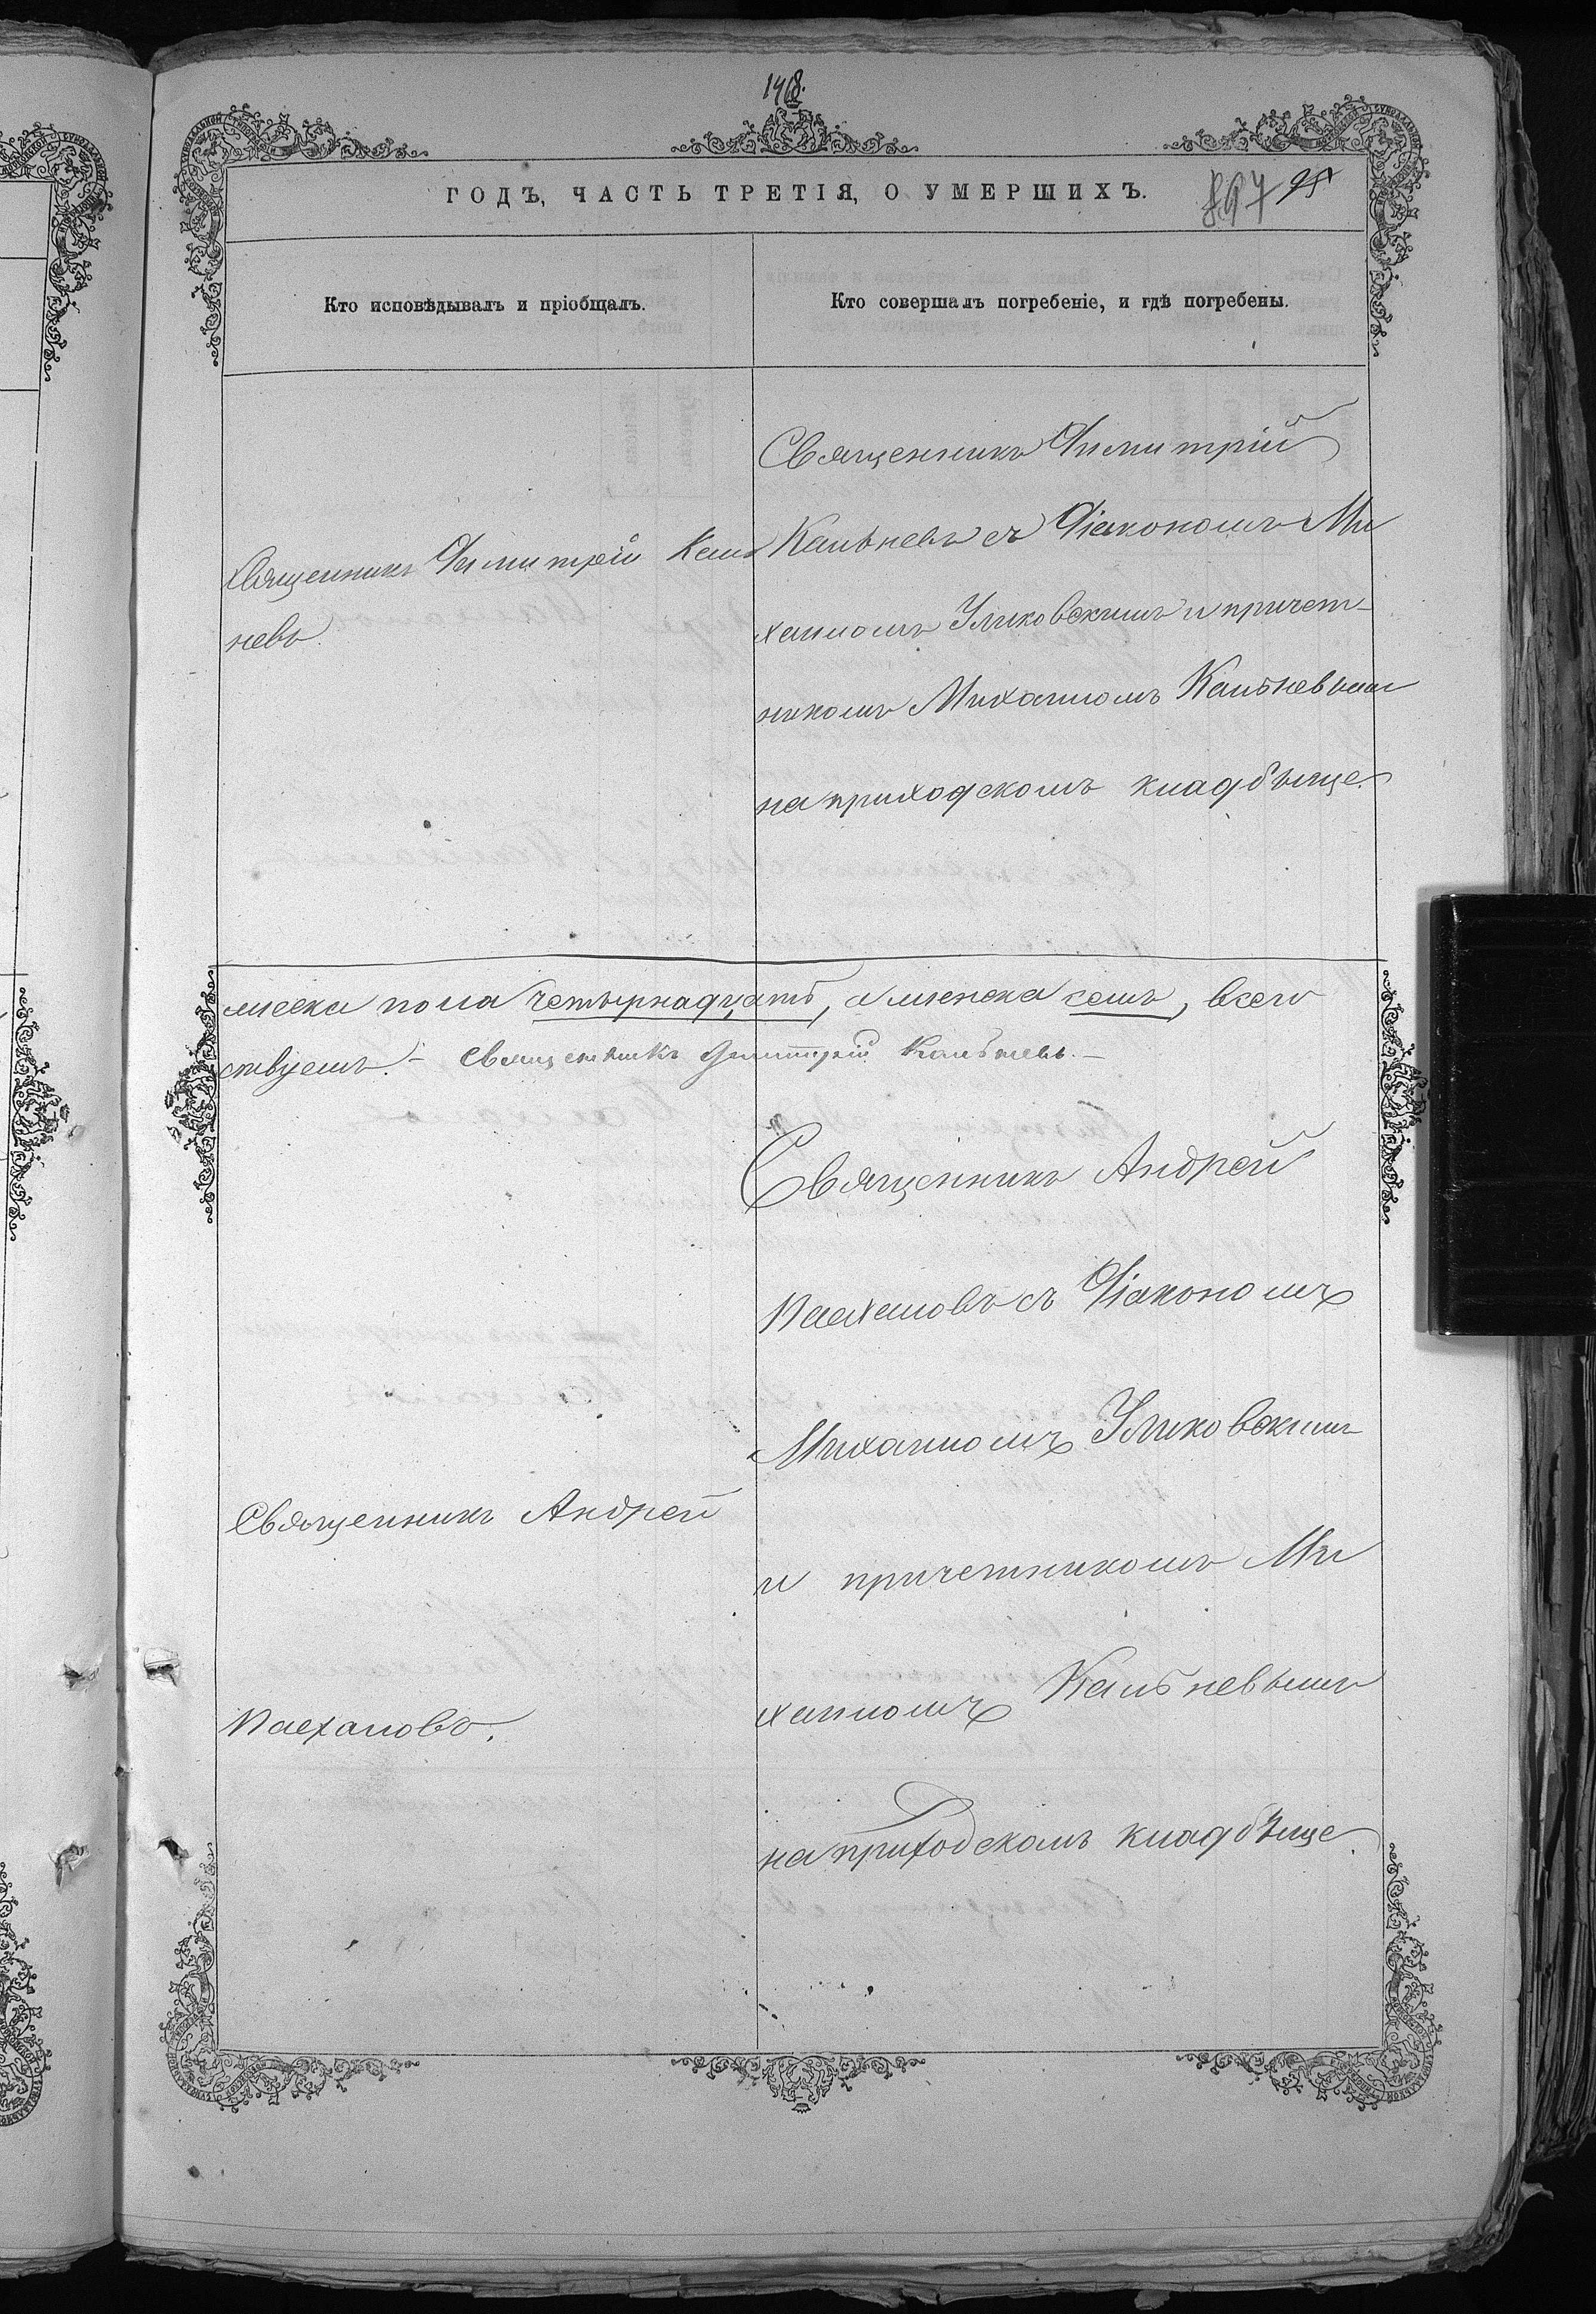 1468.
ГОДЪ, ЧАСТЬ ТРЕТІЯ, О УМЕРШИХЪ.
897 95
Кто исповѣдывалъ и пріобщалъ.
Кто совершалъ погребеніе, и гдѣ погребены.
Священникъ Димитрій Каль
невъ
Священникъ Димитрій
Кальневъ съ Діакономъ Ми
хаиломъ Уликовскимъ и причет-
никомъ Михаиломъ Кальневымъ
на приходскомъ кладбище.
мужеска пола четырнадцать, а женска семь, всего
ствуемъ. – Священникъ Димитрій Кальневъ. –
Священникъ Андрей
Пасхаловъ.
Священникъ Андрей
Пасхаловъ съ Діакономъ
Михаиломъ Уликовскимъ
и причетникомъ Ми
хаиломъ Кальневымъ
на приходскомъ кладбѣще